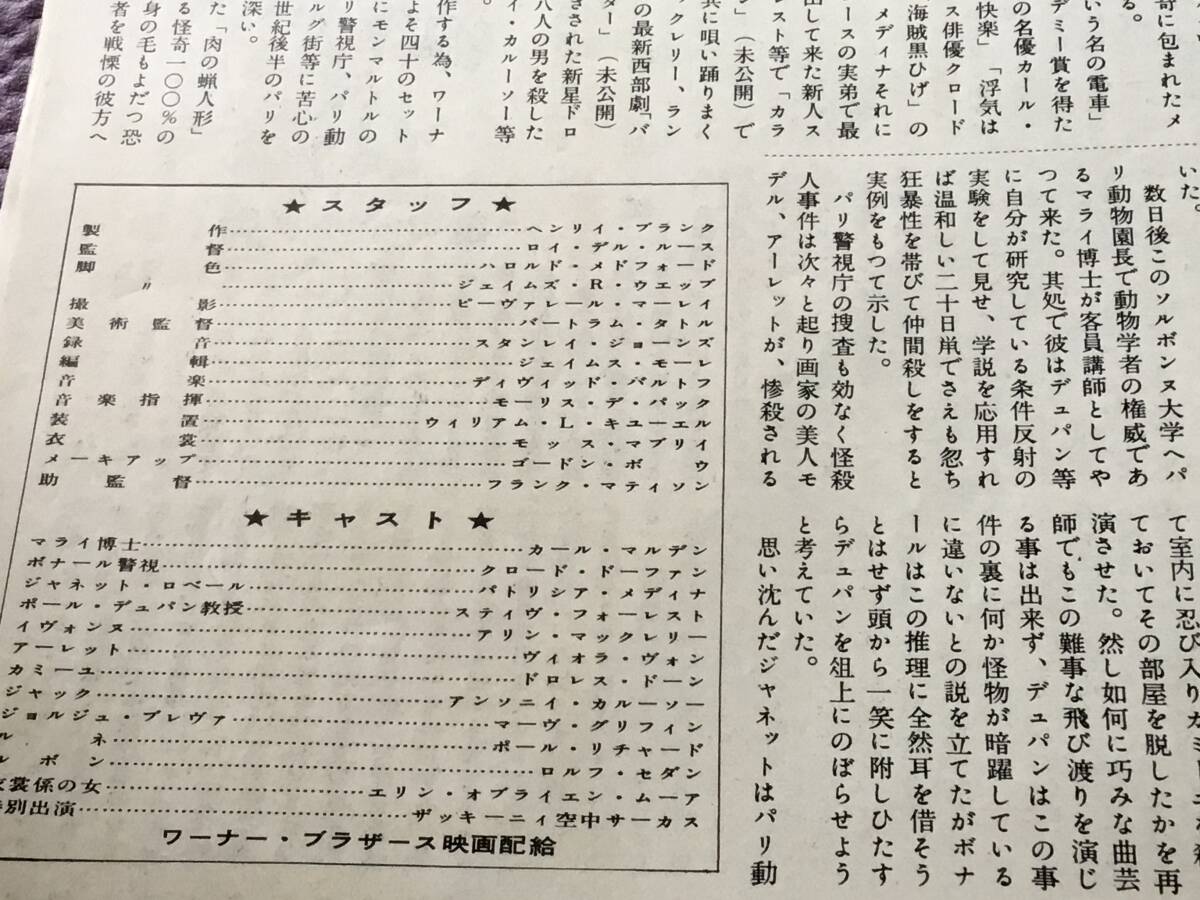 奇に包まれたメ
る。
いう名の電車」
デミー賞を得た
の名優カール・
快楽」「浮気は
ス俳優クロード
海賊黒ひげ」の
メディナそれに
ースの実弟で最
出して来た新人ス
ンスト等で「カラ
ン」（未公開）で
共に唄い踊りまく
ックレリー、ラン
の最新西部劇「バ
ター」（未公開）
きされた新星ドロ
八人の男を殺した
イ・カルーソー等
作する為、ワーナ
よそ四十のセット
にモンマルトルの
リ警視庁、パリ動
ルグ街等に苦心の
世紀後半のパリを
深い。
た「肉の蝋人形」
る怪奇一〇〇％の
身の毛もよだつ恐
者を戦慄の彼方へ
いた。
数日後このソルボンヌ大学へパ
リ動物園長で動物学者の権威であ
るマライ博士が客員講師としてや
つて来た。其処で彼はデュパン等
に自分が研究している条件反射の
実験をして見せ、学説を応用すれ
ば温和しい二十日鼡でさえも忽ち
狂暴性を帯びて仲間殺しをすると
実例をもつて示した。
パリ警視庁の捜査も効なく怪殺
人事件は次々と起り画家の美人モ
デル、アーレットが、惨殺される
て室内に忍び入りカミーユを殺
ておいてその部屋を脱したかを再
演させた。然し如何に巧みな曲芸
師でもこの難事な飛び渡りを演じ
る事は出来ず、デュパンはこの事
件の裏に何か怪物が暗躍している
に違いないとの説を立てたがボナ
ールはこの推理に全然耳を借そう
とはせず頭から一笑に附しひたす
らデュパンを俎上にのぼらせよう
と考えていた。
思い沈んだジャネットはパリ動
★スタッフ★
製作……ヘンリイ・ブランク
監督……ロイ・デル・ルース
脚色……ハロルド・メドフォード
〃……ジェイムズ・R・ウエッブ
撮影……ピーヴァレール・マーレイ
美術監督……バートラム・タトル
録音……スタンレイ・ジョーンズ
編輯……ジェイムス・モーレ
音楽……ディヴィッド・バルトフ
音楽指揮……モーリス・デ・パック
装置……ウィリアム・L・キューエル
衣裳……モッス・マブリイ
メーキアップ……ゴードン・ボウ
助監督……フランク・マティソン
★キャスト★
マライ博士……カール・マルデン
ボナール警視……クロード・ドーファン
ジャネット・ロベール……パトリシア・メディナ
ポール・デュパン教授……スティヴ・フォーレスト
イヴォンヌ……アリン・マックレリー
アーレット……ヴィオラ・ヴォン
カミーユ……ドロレス・ドーン
ジャック……アンソニイ・カルーソー
ジョルジュ・ブレヴァ……マーヴ・グリフィン
ルネ……ポール・リチャード
ルボン……ロルフ・セダン
衣裳係の女……エリン・オブライエン・ムーア
特別出演……ザッキーニィ空中サーカス
ワーナー・ブラザース映画配給